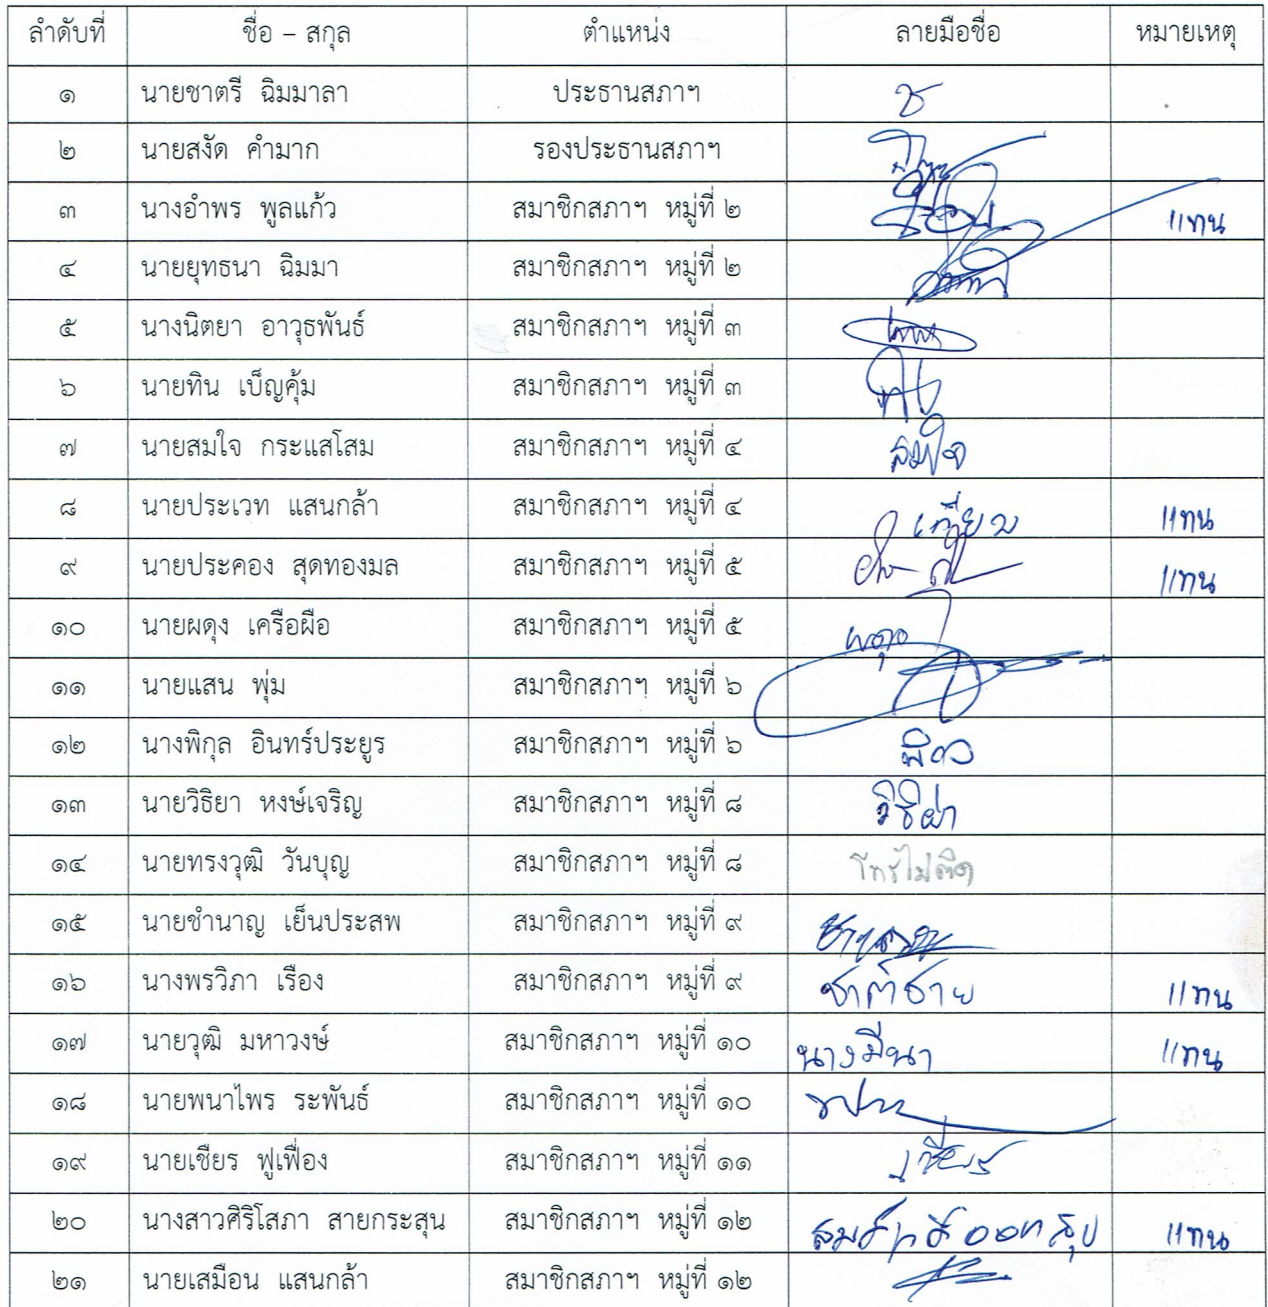 ลำดับที่ ชื่อ – สกุล ตำแหน่ง ลายมือชื่อ หมายเหตุ
๑ นายชาตรี ฉิมมาลา ประธานสภาฯ ช
๒ นายสงัด คำมาก รองประธานสภาฯ
๓ นางอำพร พูลแก้ว สมาชิกสภาฯ หมู่ที่ ๒ แทน
๔ นายยุทธนา ฉิมมา สมาชิกสภาฯ หมู่ที่ ๒
๕ นางนิตยา อาวุธพันธ์ สมาชิกสภาฯ หมู่ที่ ๓
๖ นายทิน เบ็ญคุ้ม สมาชิกสภาฯ หมู่ที่ ๓
๗ นายสมใจ กระแสโสม สมาชิกสภาฯ หมู่ที่ ๔ สมใจ
๘ นายประเวท แสนกล้า สมาชิกสภาฯ หมู่ที่ ๔ แทน
๙ นายประคอง สุดทองมล สมาชิกสภาฯ หมู่ที่ ๕ แทน
๑๐ นายผดุง เครือผือ สมาชิกสภาฯ หมู่ที่ ๕ ผดุง
๑๑ นายแสน พุ่ม สมาชิกสภาฯ หมู่ที่ ๖
๑๒ นางพิกุล อินทร์ประยูร สมาชิกสภาฯ หมู่ที่ ๖ พิกุล
๑๓ นายวิธิยา หงษ์เจริญ สมาชิกสภาฯ หมู่ที่ ๘ วิธิยา
๑๔ นายทรงวุฒิ วันบุญ สมาชิกสภาฯ หมู่ที่ ๘ โทรไม่ติด
๑๕ นายชำนาญ เย็นประสพ สมาชิกสภาฯ หมู่ที่ ๙
๑๖ นางพรวิภา เรือง สมาชิกสภาฯ หมู่ที่ ๙ ชาติชาย แทน
๑๗ นายวุฒิ มหาวงษ์ สมาชิกสภาฯ หมู่ที่ ๑๐ นางมีนา แทน
๑๘ นายพนาไพร ระพันธ์ สมาชิกสภาฯ หมู่ที่ ๑๐
๑๙ นายเชียร ฟูเฟื่อง สมาชิกสภาฯ หมู่ที่ ๑๑ เชียร
๒๐ นางสาวศิริโสภา สายกระสุน สมาชิกสภาฯ หมู่ที่ ๑๒ แทน
๒๑ นายเสมือน แสนกล้า สมาชิกสภาฯ หมู่ที่ ๑๒